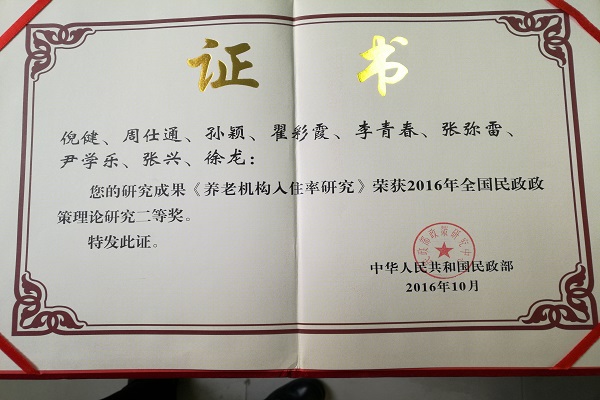 证书
倪健、周仕通、孙颖、翟彩霞、李青春、张弥雷、
尹学乐、张兴、徐龙：
您的研究成果《养老机构入住率研究》荣获2016年全国民政政
策理论研究二等奖。
特发此证。
中华人民共和国民政部
2016年10月